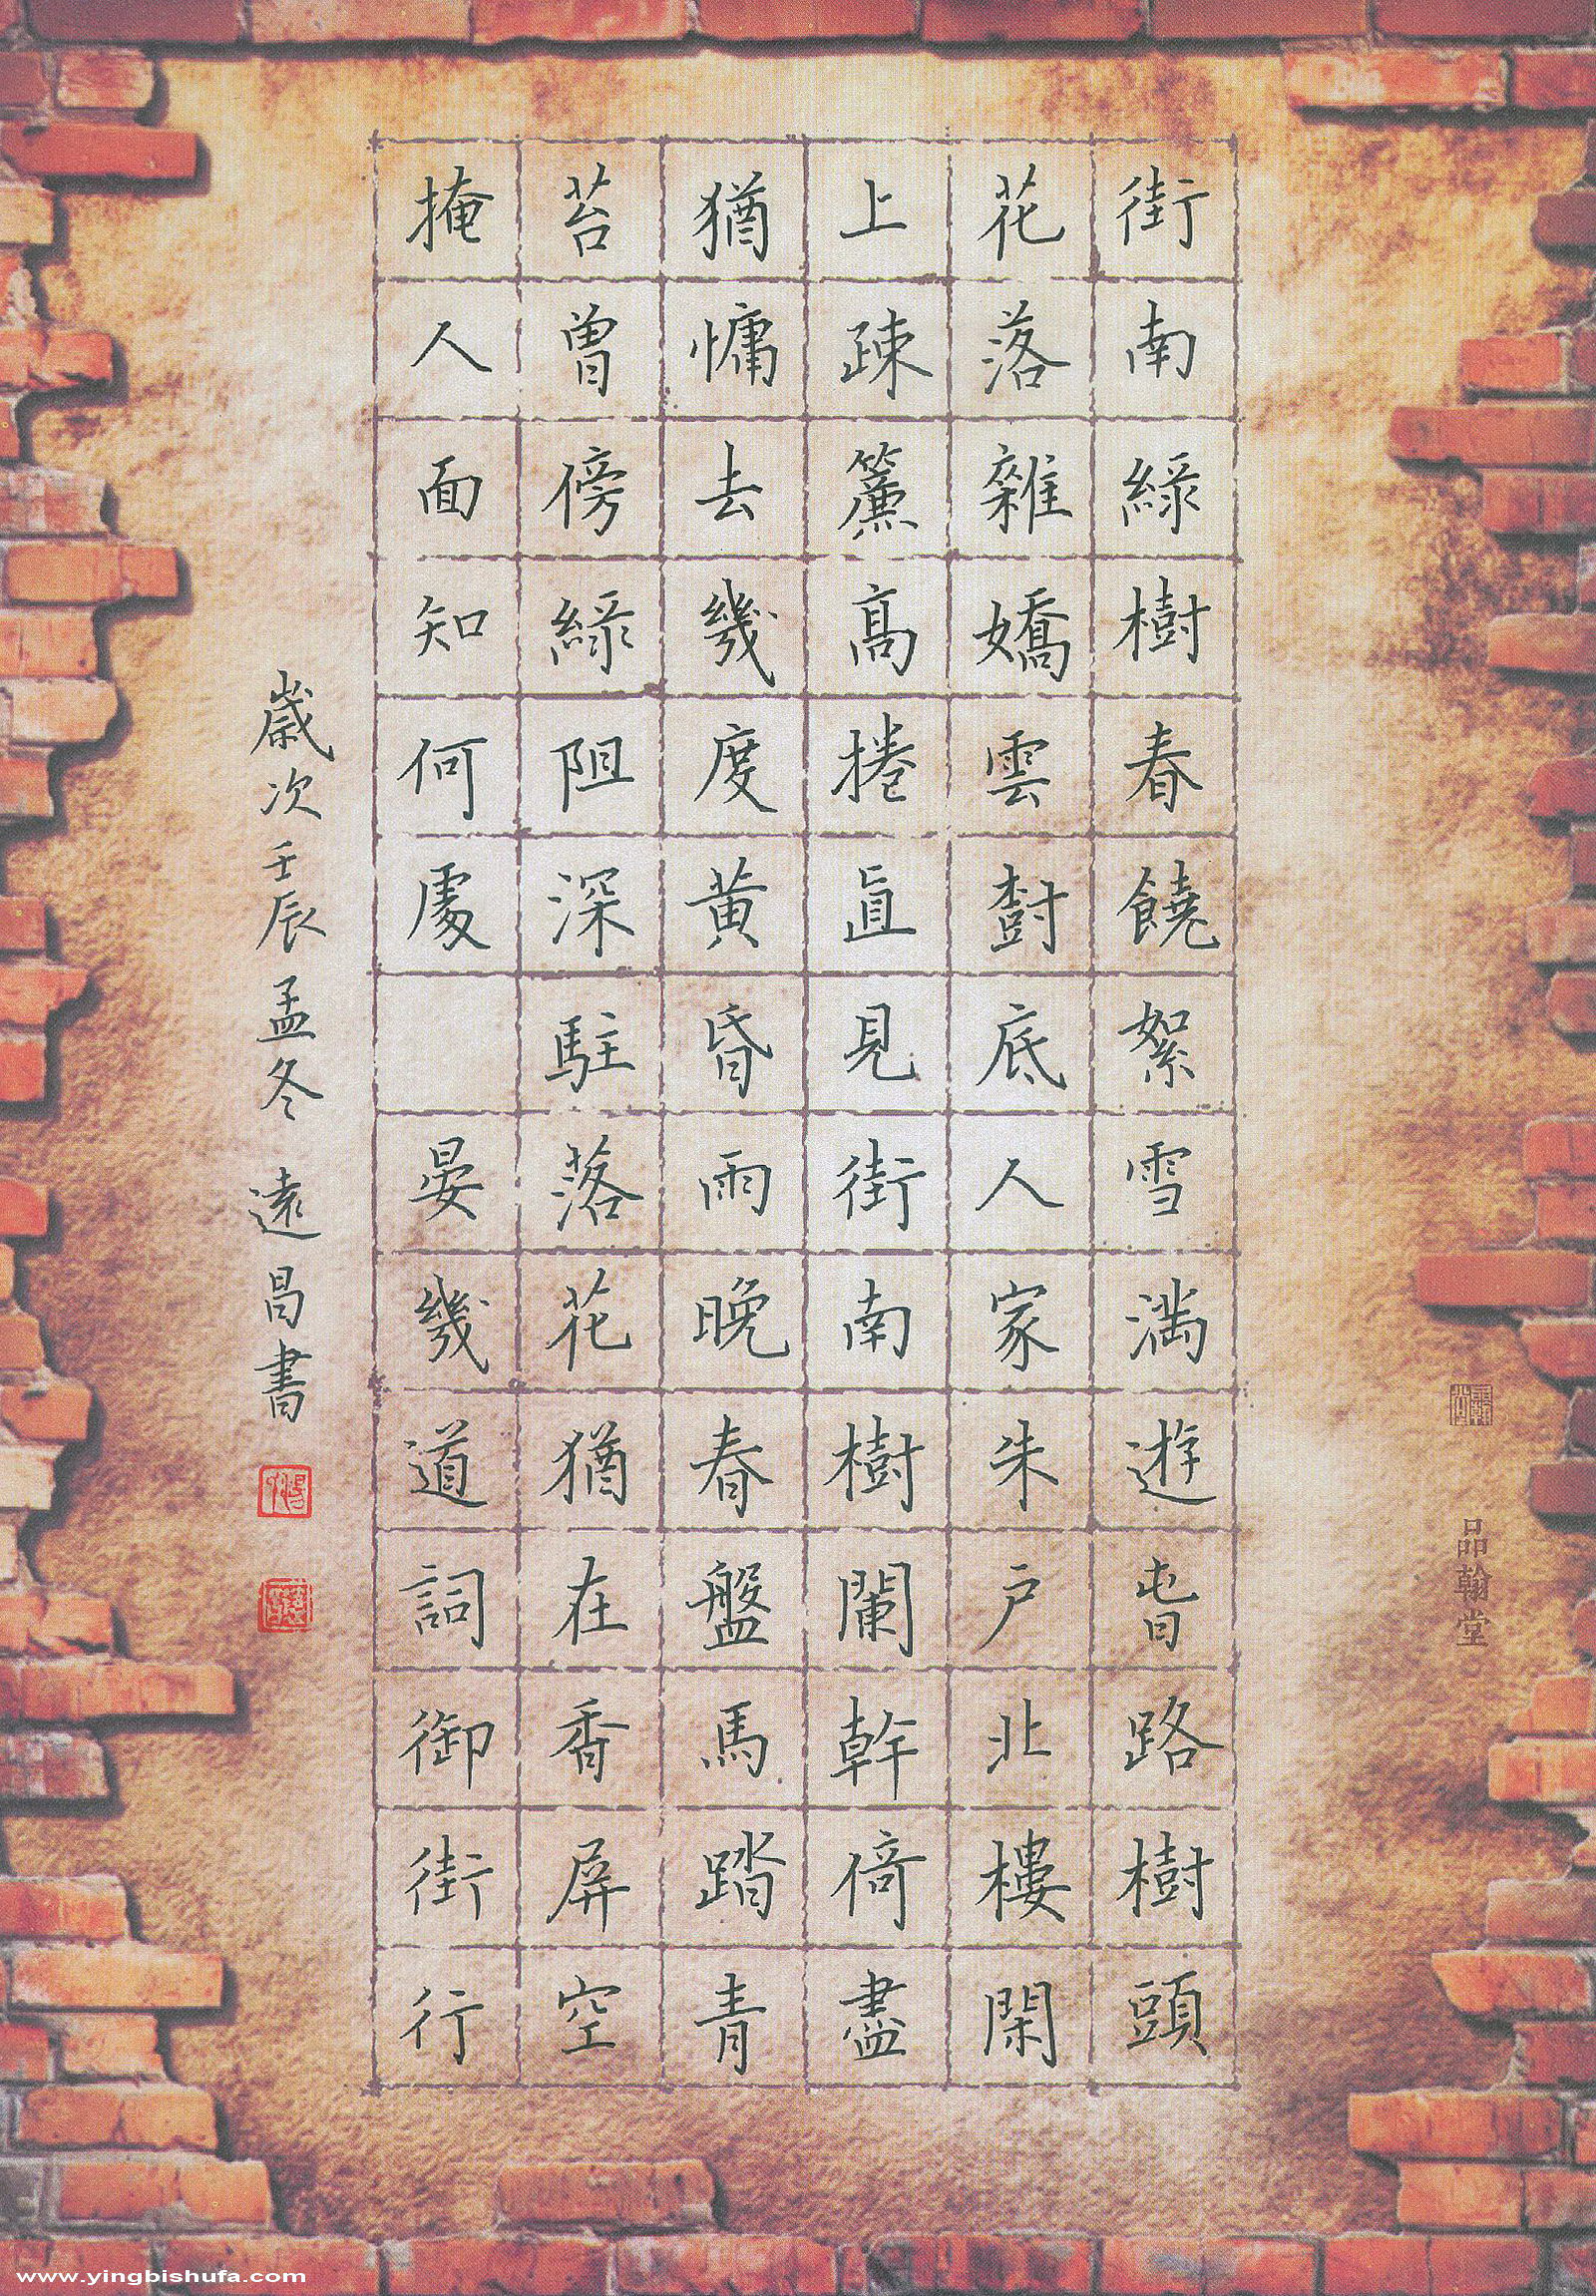 街南綠樹春饒絮雪滿遊旾路樹頭
花落雜嬌雲尌底人家朱户北樓閑
上疎簾高捲直見街南樹闌幹倚盡
猶慵去幾度黄昏雨晚春盤馬踏青
苔曾傍綠阻深駐落花猶在香屏空
掩人面知何處 晏幾道詞御街行
歲次壬辰孟冬 遠昌書
品翰堂
www.yingbishufa.com